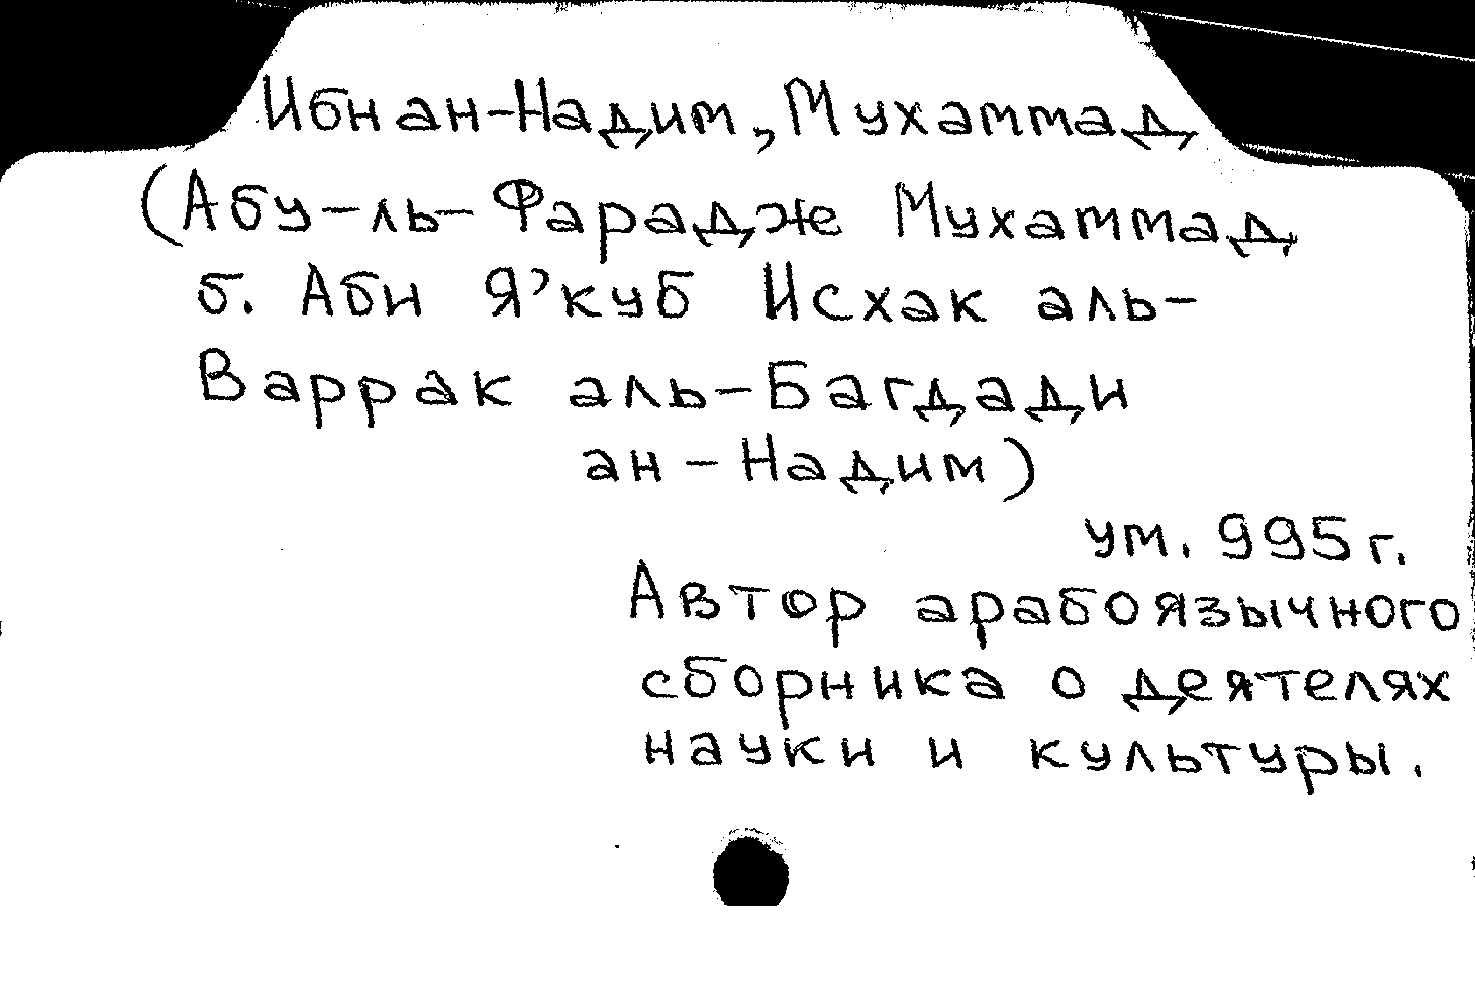 Ибн ан-Надим, Мухаммад
(Абу-ль-Фарадже Мухаммад
б. Аби Я'куб Исхак аль-
Варрак аль-Багдади
ан-Надим)
ум. 995 г.
Автор арабоязычного
сборника о деятелях
науки и культуры.